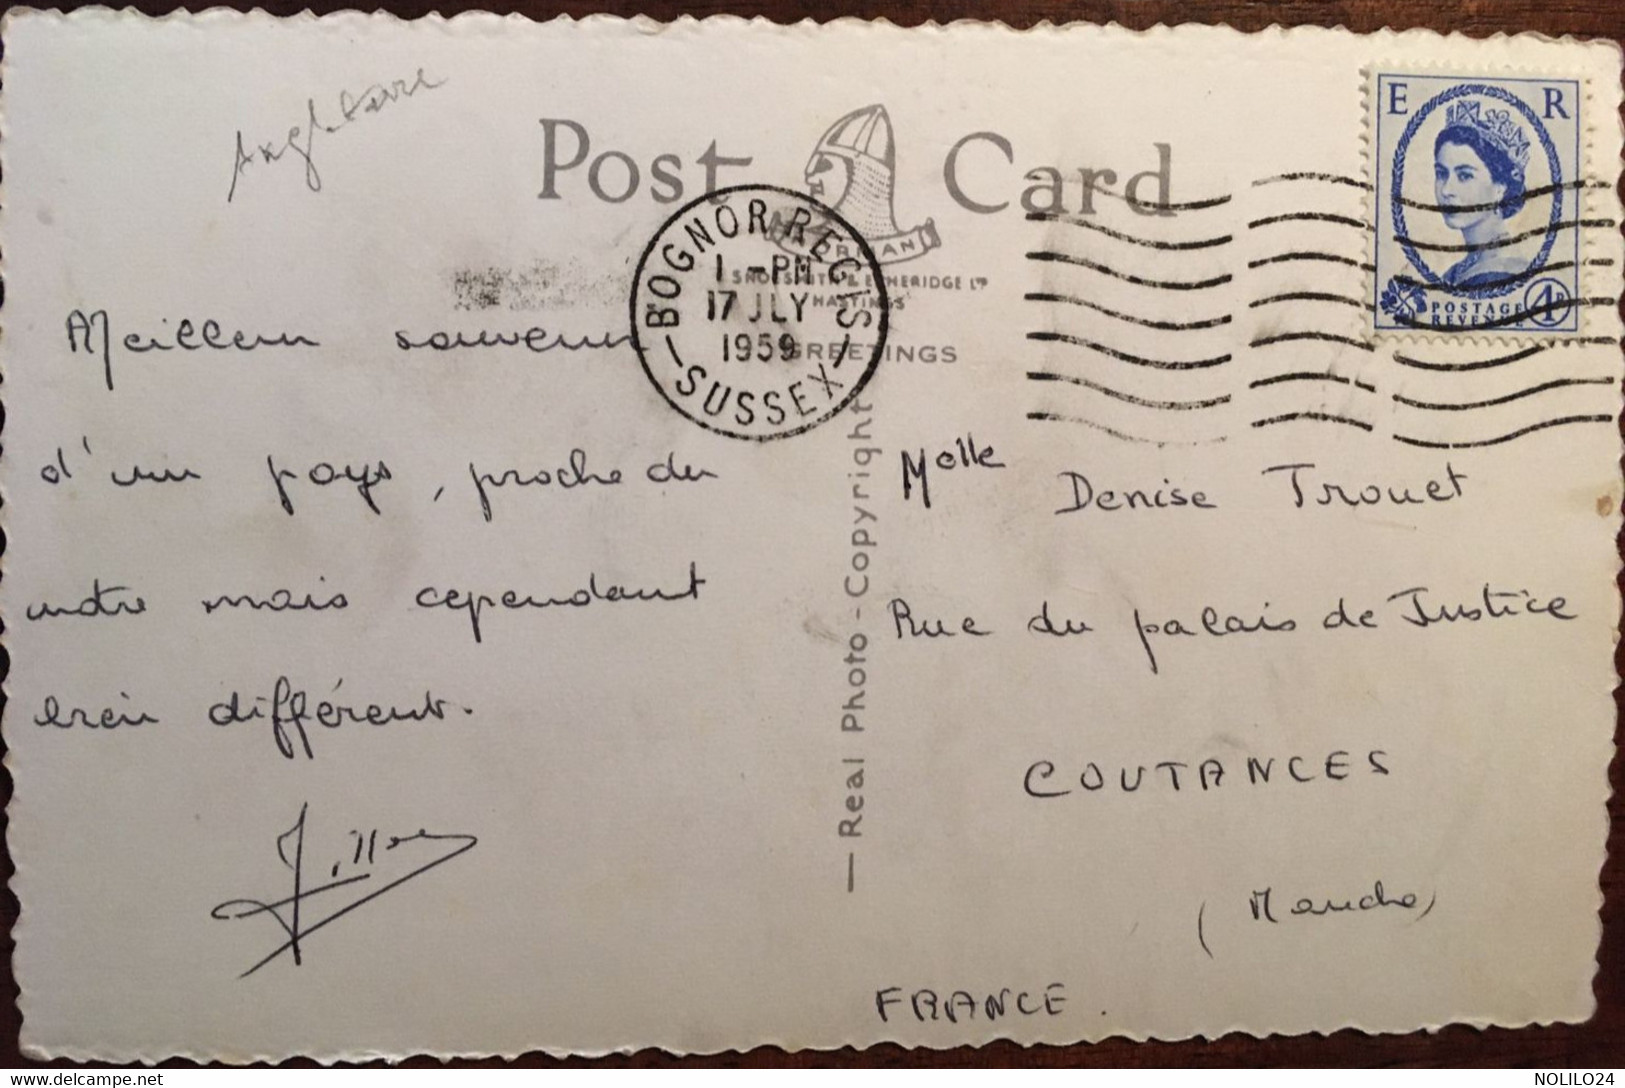 Angleterre
Post Card
NORMAN
SHOESMITH & ETHERIDGE LTD
HASTINGS
GREETINGS
BOGNOR REGIS
1 - PM
17 JLY
1959
SUSSEX
E R
POSTAGE
REVENUE
4D
Meilleur souvenir
d'un pays, proche du
notre mais cependant
bien différent.
Real Photo - Copyright
Melle Denise Trouet
Rue du palais de Justice
COUTANCES
(Manche)
FRANCE.
NOLILO24